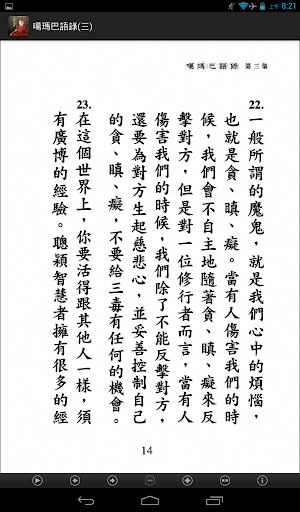 上午 8:21
噶瑪巴語錄(三)
噶瑪巴語錄 第三集
22.一般所謂的魔鬼，就是我們心中的煩惱，
也就是貪、瞋、癡。當有人傷害我們的時
候，我們會不自主地隨著貪、瞋、癡來反
擊對方，但是對一位修行者而言，當有人
傷害我們的時候，我們除了不能反擊對方，
還要為對方生起慈悲心，並妥善控制自己
的貪、瞋、癡，不要給三毒有任何的機會。
23.在這個世界上，你要活得跟其他人一樣，須
有廣博的經驗。聰穎智慧者擁有很多的經
14